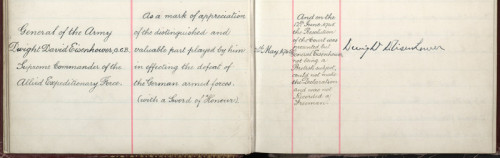 General of the Army
Dwight David Eisenhower, G.C.B.
Supreme Commander of the
Allied Expeditionary Force.
As a mark of appreciation
of the distinguished and
valuable part played by him
in effecting the defeat of
the German armed forces.
(with a Sword of Honour)
May, 1945
And on the
12th June 1945
the Resolution
of the Court was
presented but
General Eisenhower
not being a
British subject
could not make
the Declaration
and was not
Recorded a
Freeman.
Dwight D Eisenhower